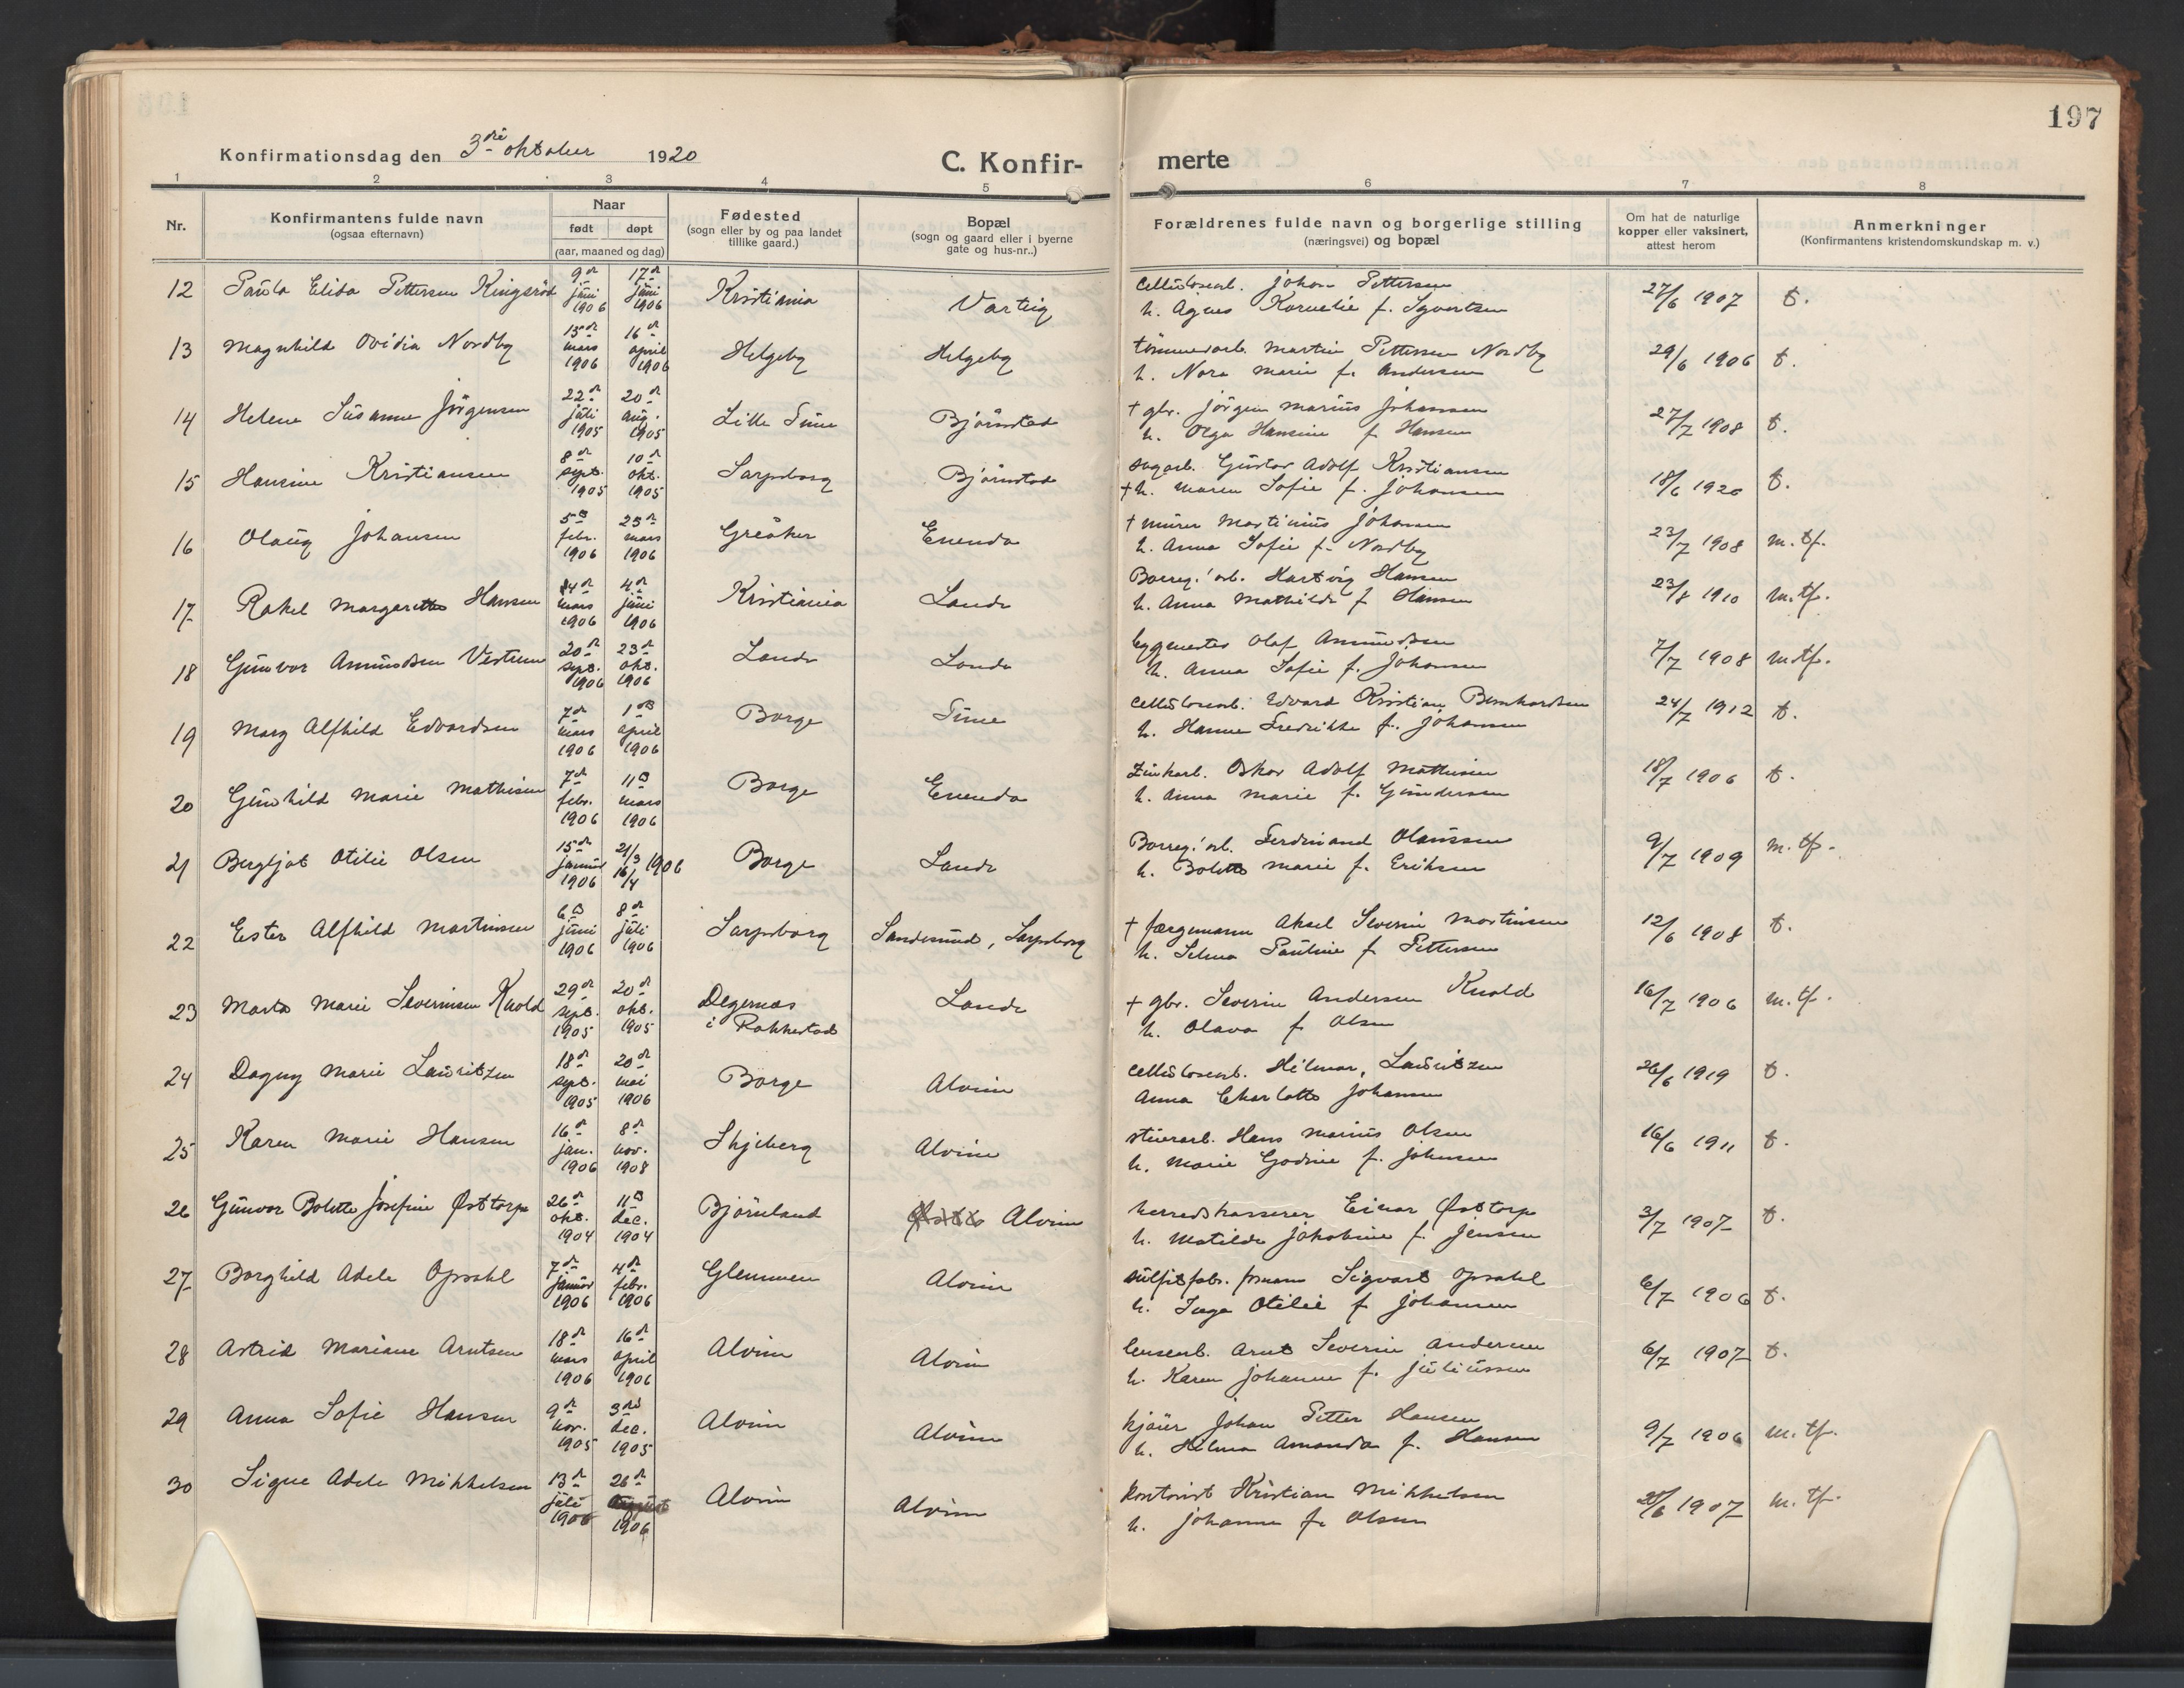 197
Konfirmationsdag den 3die oktober 1920
C. Konfir- merte
1 2 3 4 5 6 7 8
Nr.
Konfirmantens fulde navn
(ogsaa efternavn)
Naar
født døpt
(aar, maaned og dag)
Fødested
(sogn eller by og paa landet
tillike gaard.)
Bopæl
(sogn og gaard eller i byerne
gate og hus-nr..)
Forældrenes fulde navn og borgerlige stilling
(næringsvei) og bopæl
Om hat de naturlige
kopper eller vaksinert,
attest herom
Anmerkninger
(Konfirmantens kristendomskundskap m. v.)
12 Paula Elida Pettersen Kingsrød 9de juni 1906 17de juni 1906 Kristiania Varteig
cellulosearb. Johan Pettersen
h. Agnes Kornelie f. Syvertsen
27/6 1907 t.
13 Magnhild Ovidia Nordby 15de mars 1906 16de april 1906 Helgeby Helgeby
tømmerarb. Martin Pettersen Nordby
h. Nora Marie f. Andersen
29/6 1906 t.
14 Helene Susanne Jörgensen 22de juli 1905 20de aug. 1905 Lille Tune Bjørnstad
† gbr. Jörgen Marius Johansen
h. Olga Hansine f. Hansen
27/7 1908 t.
15 Hansine Kristiansen 8de sept. 1905 10de okt. 1905 Sarpsborg Bjørnstad
sagarb. Gustav Adolf Kristiansen
† h. Maren Sofie f. Johansen
18/6 1920 t.
16 Olaug Johansen 5te febr. 1906 25de mars 1906 Greåker Enenda
† murer Martinius Johansen
h. Anna Sofie f. Nordby
23/7 1908 m. tf.
17 Rakel Margarette Hansen 24de mars 1906 4de juni 1906 Kristiania Lande
Borreg.'arb. Hartvig Hansen
h. Anna Mathilde f. Hansen
23/8 1910 m. tf.
18 Gunvor Amundsen Vestrum 20de sept. 1906 23de okt. 1906 Lande Lande
byggmester Olaf Amundsen
h. Anna Sofie f. Johansen
7/7 1908 m. tf.
19 Mary Alfhild Edvardsen 7de mars 1906 1ste april 1906 Borge Tune
cellulosearb. Edvard Kristian Bernhardsen
h. Hanne Fredrikke f. Johansen
24/7 1912 t.
20 Gunhild Marie Mathisen 7de febr. 1906 11te mars 1906 Borge Enenda
Zinkarb. Oskar Adolf Mathisen
h. Anna Marie f. Gundersen
18/7 1906 t.
21 Bergljot Otilie Olsen 15de januar 1906 21/3 16/4 1906 Borge Lande
Borreg.'arb. Ferdinand Olaussen
h. Bolette Marie f. Eriksen
9/7 1909 m. tf.
22 Ester Alfhild Martinsen 6te juni 1906 8de juli 1906 Sarpsborg Sandesund, Sarpsborg
† færgemann Aksel Severin Martinsen
h. Selma Pauline f. Pettersen
12/6 1908 t.
23 Marta Marie Severinsen Knold 29de sept. 1905 20de okt. 1905 Degernæs i Rakkestad Lande
† gbr. Severin Andersen Knold
h. Olava f. Olsen
16/7 1906 m. tf.
24 Dagny Marie Lauritzen 18de sept. 1905 20de mai 1906 Borge Alvim
cellulosearb. Hilmar, Lauritzen
Anna Charlotte Johansen
26/6 1919 t.
25 Karen Marie Hansen 16de jan. 1906 8de nov. 1908 Skjeberg Alvim
stuerarb. Hans Marius Olsen
h. Marie Godine f. Johnsen
16/6 1911 t.
26 Gunvor Bolette Josefine Østtorp 26de okt. 1904 11te dec. 1904 Bjørnland Alvim
herredskasserer Einar Østtorp
h. Matilde Jakobine f. Jensen
3/7 1907 t.
27 Borghild Adele Opsahl 7de januar 1906 4de febr. 1906 Glemmen Alvim
sulfitfabr. formann Sigvart Opsahl
h. Inga Otilie f. Johansen
6/7 1906 t.
28 Astrid Mariane Arntsen 18de mars 1906 16de april 1906 Alvim Alvim
lensearb. Arnt Severin Andersen
h. Karen Johanne f. Juliussen
6/7 1907 t.
29 Anna Sofie Hansen 9de nov. 1905 3die dec. 1905 Alvim Alvim
kjører Johan Petter Hansen
h. Helma Amanda f. Hansen
9/7 1906 m. tf.
30 Signe Adele Mikkelsen 13de juli 1906 26de august 1906 Alvim Alvim
kontorist Kristian Mikkelsen
h. Johanne f. Olsen
28/6 1907 m. tf.